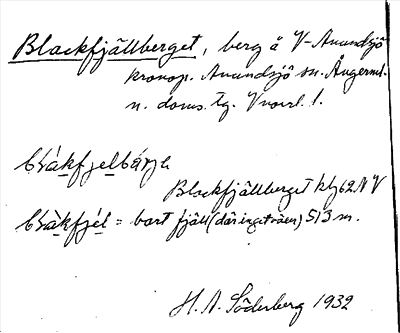 Blackfjällberget, berg å V-Anundsjö
kronop. Anundsjö sn. Ångerml.
n. doms. tg. Vnorrl. l.
blákfjelbárje
Blackfjällberget kbl 62 NV
blákfjél = bart fjäll (där inget växer) 513 m.
H. A. Söderberg 1932